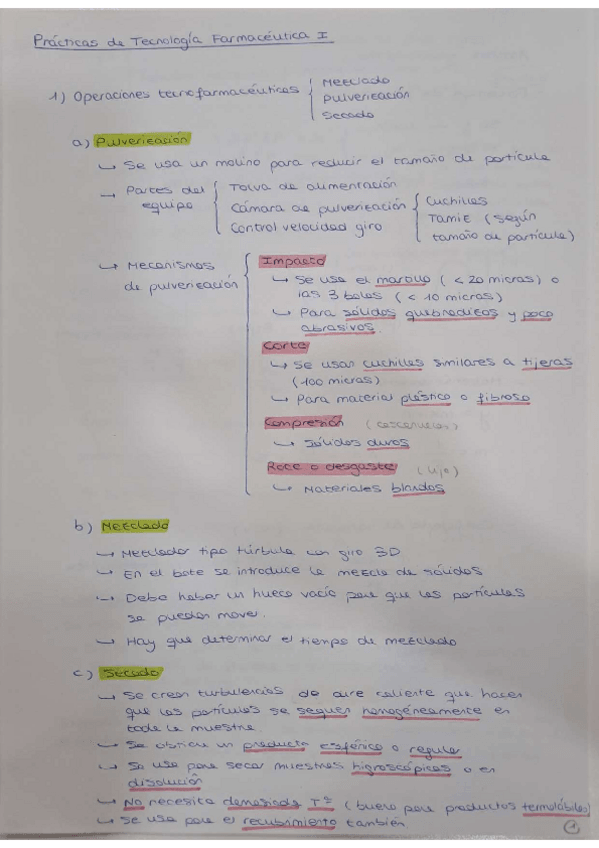 Prácticas de Tecnología Farmacéutica I
1) Operaciones tecnofarmacéuticas { Mezclado
Pulverización
Secado
a) Pulverización
↳ Se usa un molino para reducir el tamaño de partícula
→ Partes del equipo { Tolva de alimentación
Cámara de pulverización { Cuchillas
Tamiz (según tamaño de partícula)
Control velocidad giro
↳ Mecanismos de pulverización {
Impacto
↳ Se usa el martillo (< 20 micras) o
las 3 bolas (< 10 micras)
↳ Para sólidos quebradizos y poco
abrasivos.
Corte
↳ Se usan cuchillas similares a tijeras
(100 micras)
↳ Para material plástico o fibroso
Compresión
↳ Sólidos duros
Roce o desgaste (lija)
↳ Materiales blandos
b) Mezclado
↳ Mezclador tipo túrbula con giro 3D
↳ En el bote se introduce la mezcla de sólidos
↳ Debe haber un hueco vacío para que las partículas
se puedan mover.
↳ Hay que determinar el tiempo de mezclado
c) Secado
↳ Se crean turbulencias de aire caliente que hacen
que las partículas se sequen homogéneamente en
toda la muestra.
↳ Se obtiene un producto esférico o regular
↳ Se usa para secar muestras higroscópicas o en
disolución
↳ No necesita demasiada Tª (bueno para productos termolábiles)
↳ Se usa para el recubrimiento también.
1